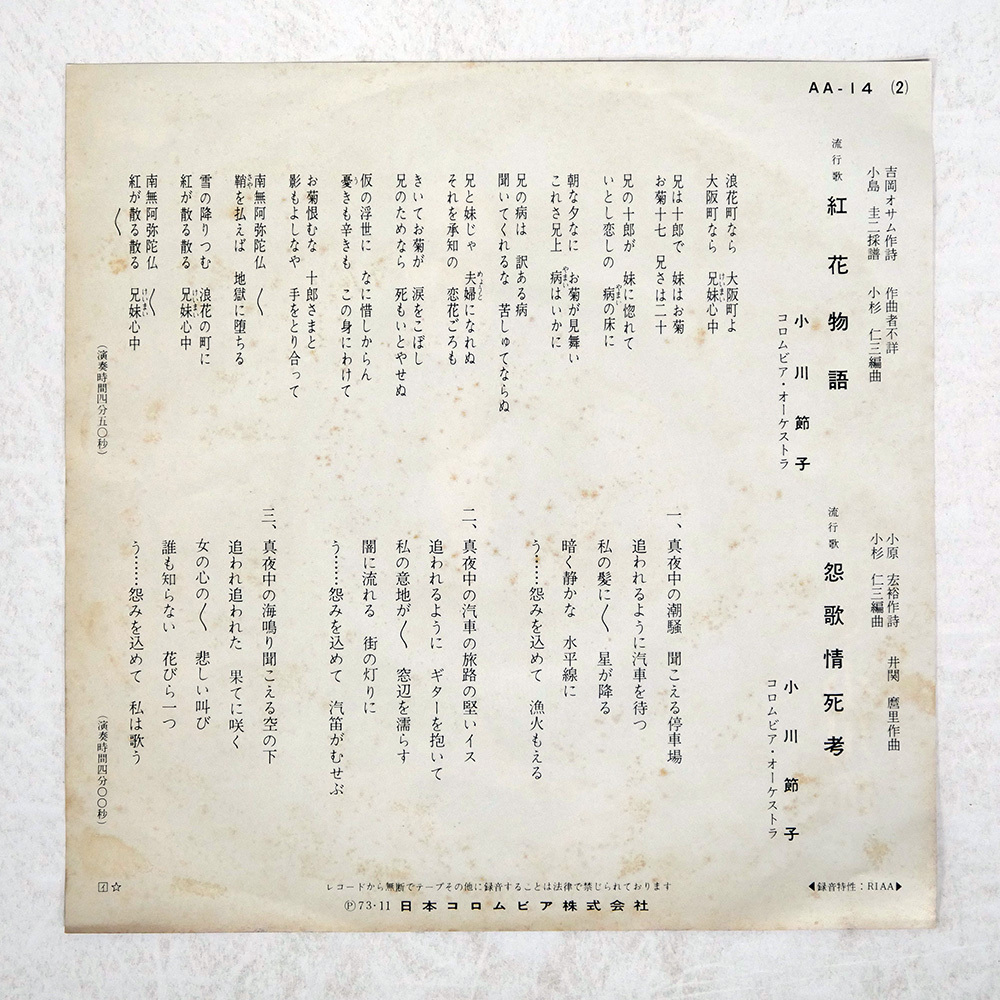 AA-14 (2)
吉岡オサム作詩 作曲者不詳
小島 圭二採譜 小杉 仁三編曲
流行歌 紅花物語
小川 節子
コロムビア・オーケストラ
浪花町なら 大阪町よ
大阪町なら 兄妹心中
兄は十郎で 妹はお菊
お菊十七 兄さは二十
兄の十郎が 妹に惚れて
いとし恋しの 病の床に
朝な夕なに お菊が見舞い
これさ兄上 病はいかに
兄の病は 訳ある病
聞いてくれるな 苦しゅてならぬ
兄と妹じゃ 夫婦になれぬ
それを承知の 恋花ごろも
きいてお菊が 涙をこぼし
兄のためなら 死もいとやせぬ
仮の浮世に なに惜しからん
憂きも辛きも この身にわけて
お菊恨むな 十郎さまと
影もよしなや 手をとり合って
南無阿弥陀仏 〱
鞘を払えば 地獄に堕ちる
雪の降りつむ 浪花の町に
紅が散る散る 兄妹心中
南無阿弥陀仏 〱
紅が散る散る 兄妹心中
〱
(演奏時間四分五〇秒)
小原 宏裕作詩 井関 麿里作曲
小杉 仁三編曲
流行歌 怨歌情死考
小川 節子
コロムビア・オーケストラ
一、真夜中の潮騒 聞こえる停車場
追われるように汽車を待つ
私の髪に〱 星が降る
暗く静かな 水平線に
う……怨みを込めて 漁火もえる
二、真夜中の汽車の旅路の堅いイス
追われるように ギターを抱いて
私の意地が〱 窓辺を濡らす
闇に流れる 街の灯りに
う……怨みを込めて 汽笛がむせぶ
三、真夜中の海鳴り聞こえる空の下
追われ追われた 果てに咲く
女の心の〱 悲しい叫び
誰も知らない 花びら一つ
う……怨みを込めて 私は歌う
(演奏時間四分〇〇秒)
◀録音特性:RIAA▶
レコードから無断でテープその他に録音することは法律で禁じられております
Ⓟ73·11 日本コロムビア株式会社
イ☆